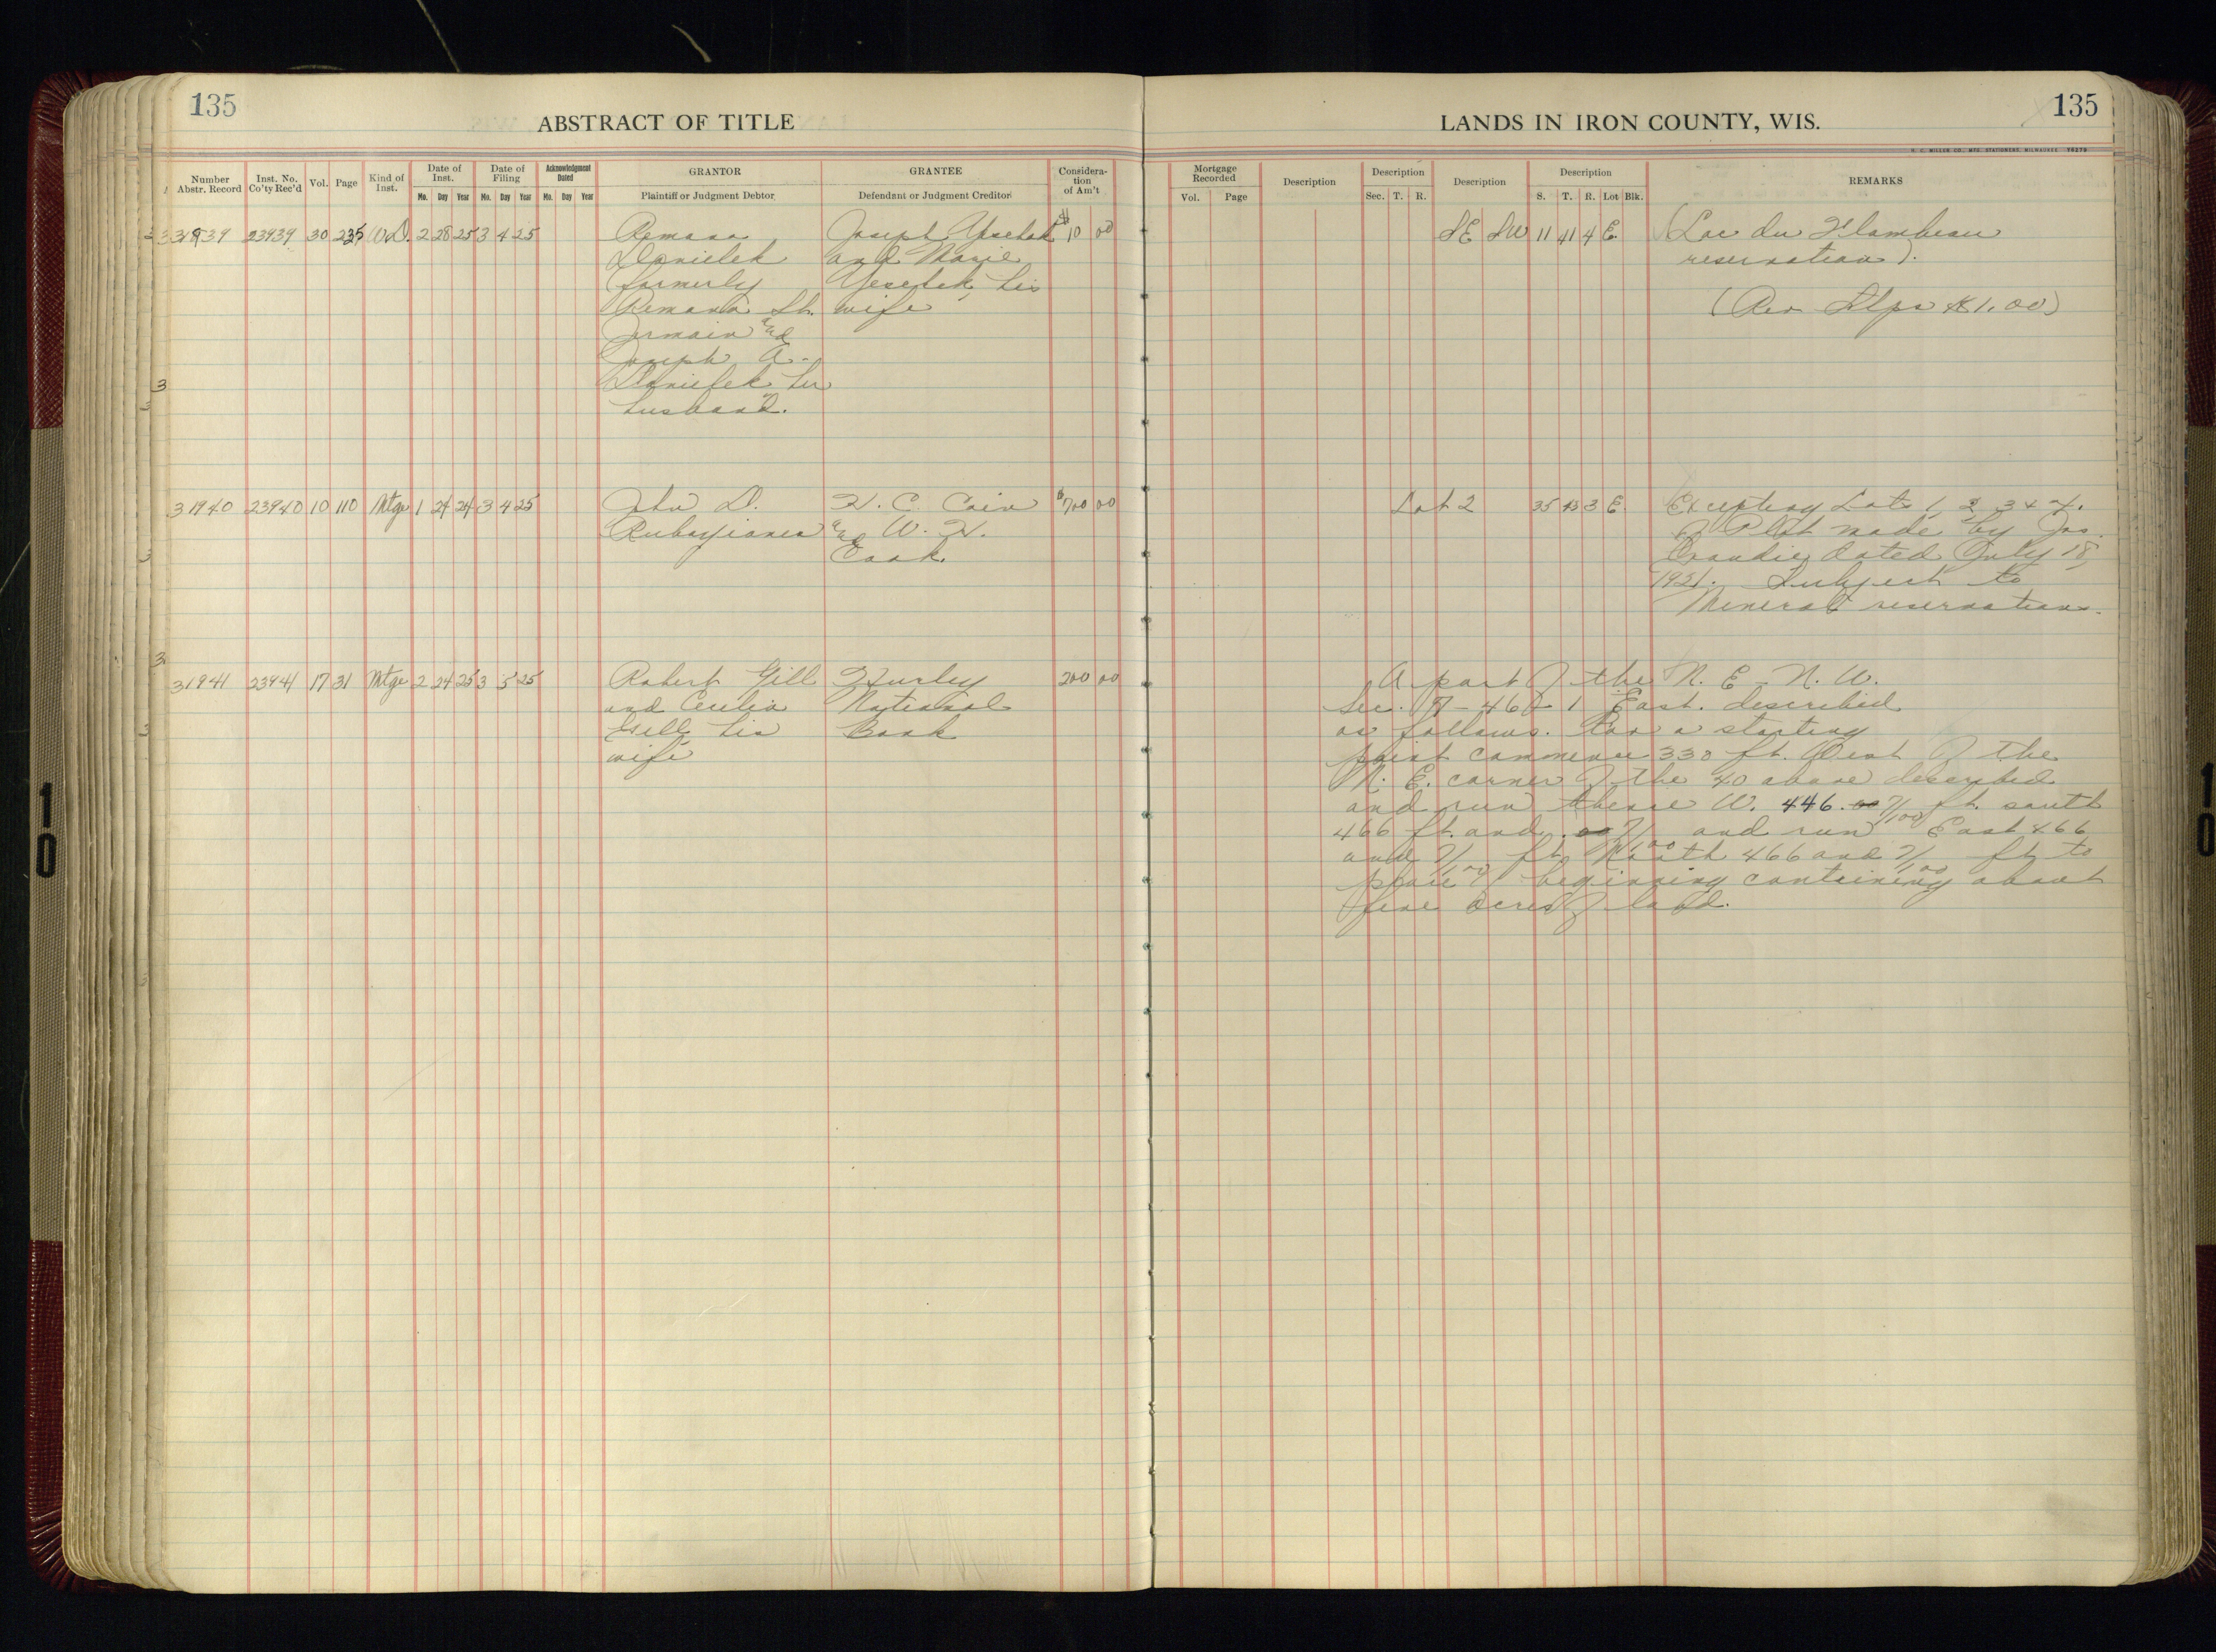 135
ABSTRACT OF TITLE
Number Abstr. Record
Inst. No. Co'ty Rec'd
Vol.
Page
Kind of Inst.
Date of Inst.
Mo. Day Year
Date of Filing
Mo. Day Year
Acknowledgment Dated
Mo. Day Year
GRANTOR
Plaintiff or Judgment Debtor
GRANTEE
Defendant or Judgment Creditor
Considera-
tion
of Am't
31939 23939 30 235 W.D. 2 28 25 3 4 25
Romana
Danielek
formerly
Romana St.
Jermain and
Joseph A.
Danielek her
husband.
Joseph
and Marie
his
wife
$10 00
31940 23940 10 110 Mtge 1 24 24 3 4 25
John D.
H. C. Cain
and W. H.
Cook
$700 00
31941 23941 17 31 Mtge 2 24 25 3 5 25
Robert Gill
and Cecelia
Gill, his
wife
Hurley
National
Bank
200 00
LANDS IN IRON COUNTY, WIS.
135
H. C. MILLER CO., MFG. STATIONERS, MILWAUKEE 74279
Mortgage Recorded
Vol. Page
Description
Description
Sec. T. R.
Description
Description
S. T. R. Lot Blk.
REMARKS
SE SW 11 41 4 E.
(Lac du Flambeau
reservation).
(Rev Stps $1.00)
Lot 2 35 43 3 E.
Excepting Lots 1, 2, 3 & 4.
of Plat made by Jas.
dated July 18,
1921. Subject to
Mineral reservations.
A part of the N. E - N. W.
Sec. 46 1 East. described
as follows. For a starting
point commence 330 ft. West of the
N. E. corner of the 40 above described
and run thence W. 446. 71/100 ft. south
466 ft. and 71/100 and run East 466
and 71/100 ft. North 466 and 71/100 ft. to
place of beginning containing about
five acres of land.